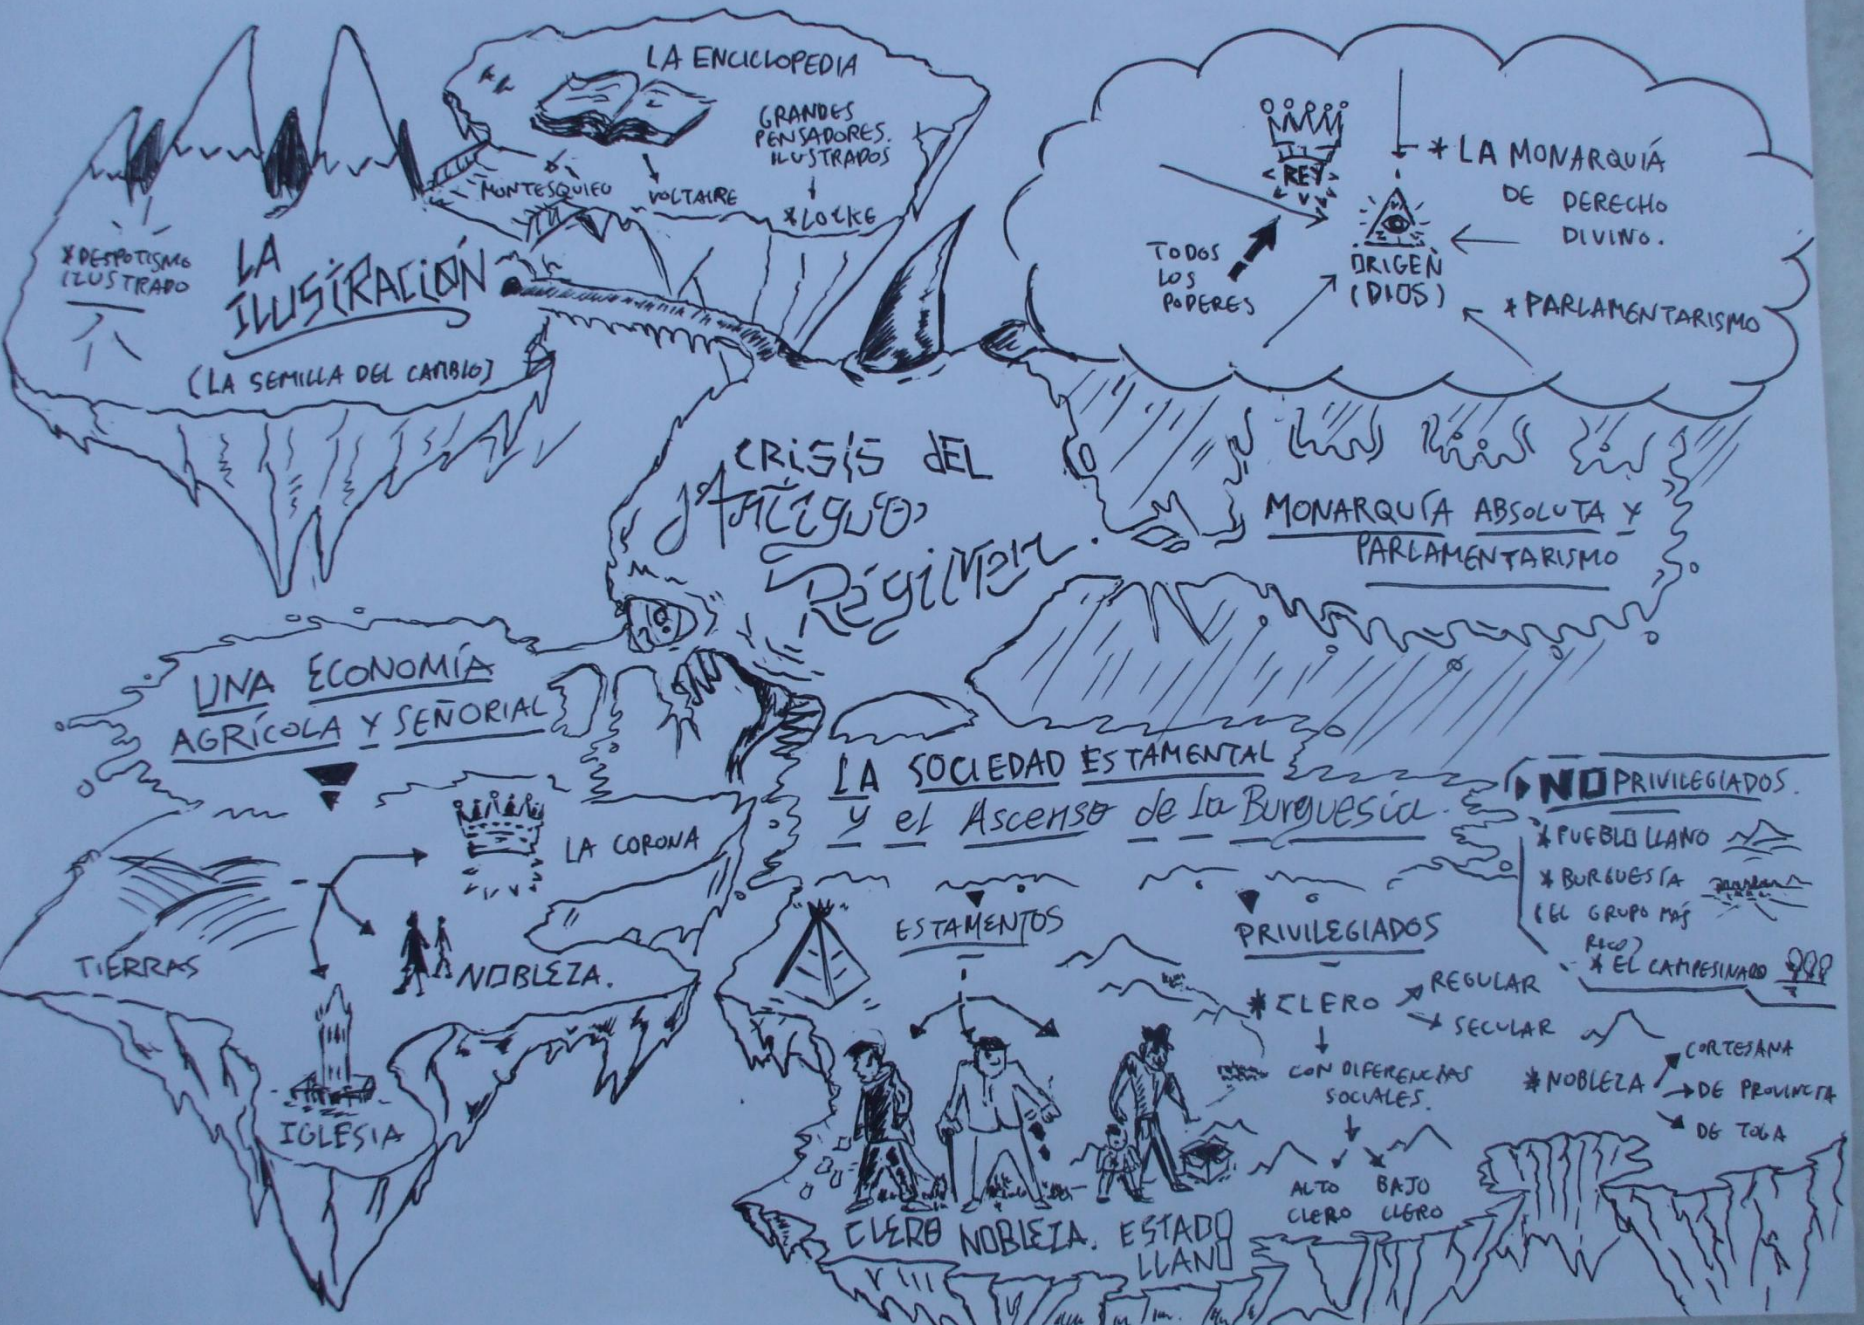 LA ENCICLOPEDIA
GRANDES
PENSADORES.
ILUSTRADOS
MONTESQUIEU
VOLTAIRE
*LOCKE
*DESPOTISMO
ILUSTRADO
LA
ILUSTRACIÓN
(LA SEMILLA DEL CAMBIO)
REY
TODOS
LOS
PODERES
ORIGEN
(DIOS)
*LA MONARQUÍA
DE DERECHO
DIVINO.
*PARLAMENTARISMO
CRISIS DEL
Antiguo
Régimen.
MONARQUÍA ABSOLUTA Y
PARLAMENTARISMO
UNA ECONOMÍA
AGRÍCOLA Y SEÑORIAL
LA CORONA
TIERRAS
NOBLEZA.
IGLESIA
LA SOCIEDAD ESTAMENTAL
y el Ascenso de la Burguesía.
ESTAMENTOS
CLERO NOBLEZA. ESTADO
LLANO
PRIVILEGIADOS
*CLERO
REGULAR
SECULAR
CON DIFERENCIAS
SOCIALES.
ALTO
CLERO
BAJO
CLERO
*NOBLEZA
CORTESANA
DE PROVINCIA
DE TOGA
NO PRIVILEGIADOS.
*PUEBLO LLANO
*BURGUESÍA
(EL GRUPO MÁS
RICO)
*EL CAMPESINADO